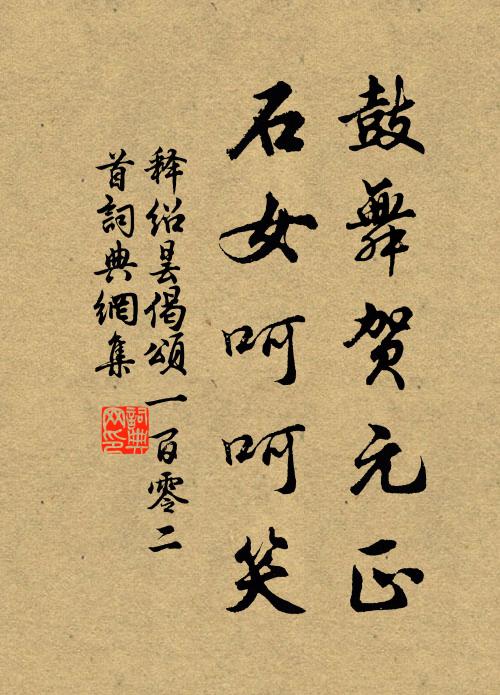 鼓舞贺元正
石女呵呵笑
释绍昙偈颂一百零二
首词典網集
詞典网印